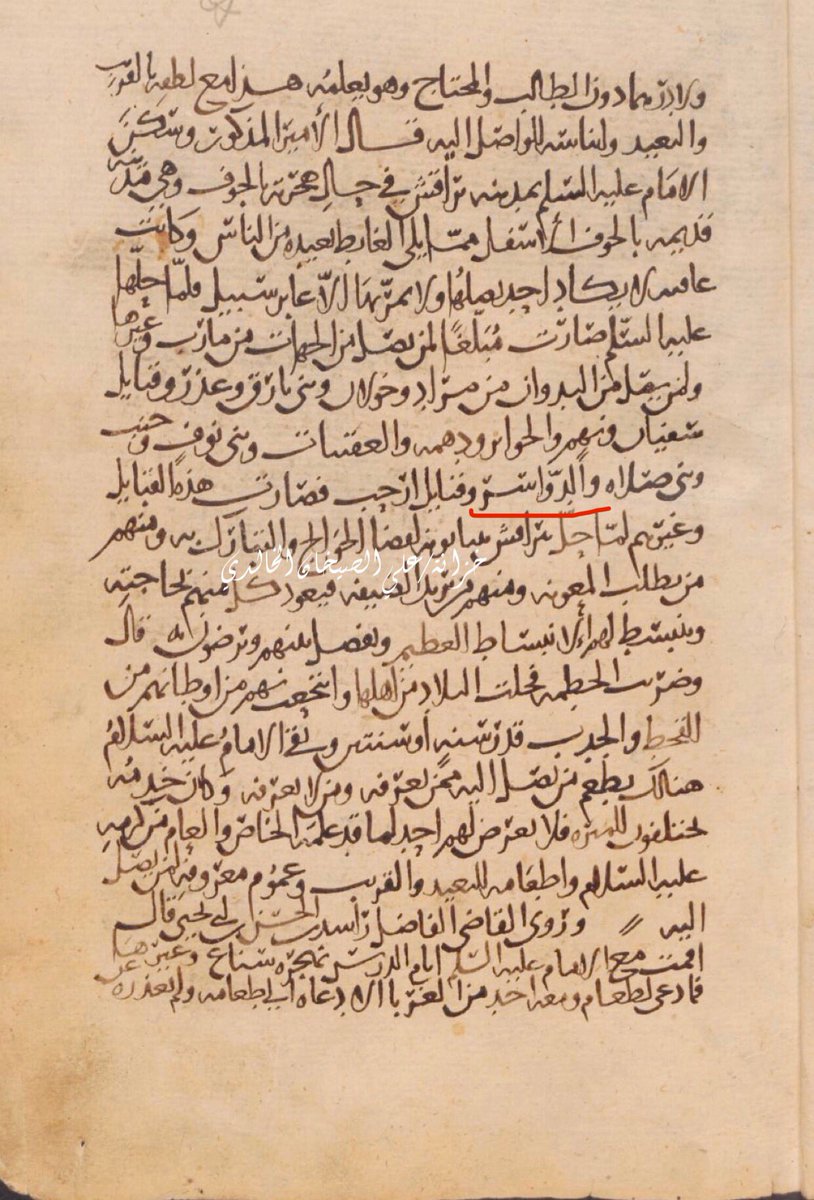 ولا يدّه مادون الطالب والمحتاج وهو يعلمه هذا مع لطفه بالقريب
والبعيد وايناسه للواصل اليه قال الأمير المذكور وسكن
الامام عليه السلم بمدينه براقش في حال هجرته بالجوف وهي مدينه
قديمه بالجوف الأسفل مما يلي الغايط بعيده من الناس وكانت
لا يكاد احد يصلها ولا يمرّ بها الّا عابر سبيل فلمّا حلّها
عليه السّلم صارت مُبَلّغًا لمن يصل من الجهات من مارب وغيرها
ولمن يصل من البدوان من مراد وخولان وبني بارق وعذر وقبايل
سفيان ونهم والجوابر ودهمه والعقبات وبني نوف وجنب
وبني صلاه والدّواسر وقبايل ارحب فصارت هذه القبايل
وغيرهم لمّا حلّ براقش ياتونه لقضا الحوايج والتبارك به ومنهم
من يطلب المعونه ومنهم من يريد الضيفه فيعود كل منهم بحاجته
وينبسط لهم الانبساط العظيم ويفصل بينهم ويرضون بذلك قال
وضرب الحطمه فخلت البلاد من اهلها وانتجعت نهم من اوطانهم من
القحط والجدب قدر سنه أو سنتين وبقي الامام عليه السلام
هنالك يطعم من يصل اليه ممن يعرفه ومن لا يعرفه وكان خدمه
يختلفون للميره فلا يعرض لهم احد لما قد علمه الخاص والعام من كرمه
عليه السلام واطعامه للبعيد والقريب وعموم معروفه لمن يصل
اليه وروى القاضي الفاضل راشد بن الحسن بن ابي يحيى قال
اقمت مع الامام عليه السلم ايام الدرس بهجره سناع وغيرها
فما دعى لطعام ومعه احد من الغربا الا دعاه الى طعامه ولم يعذره عن
خزانة/علي الصيخان الخالدي